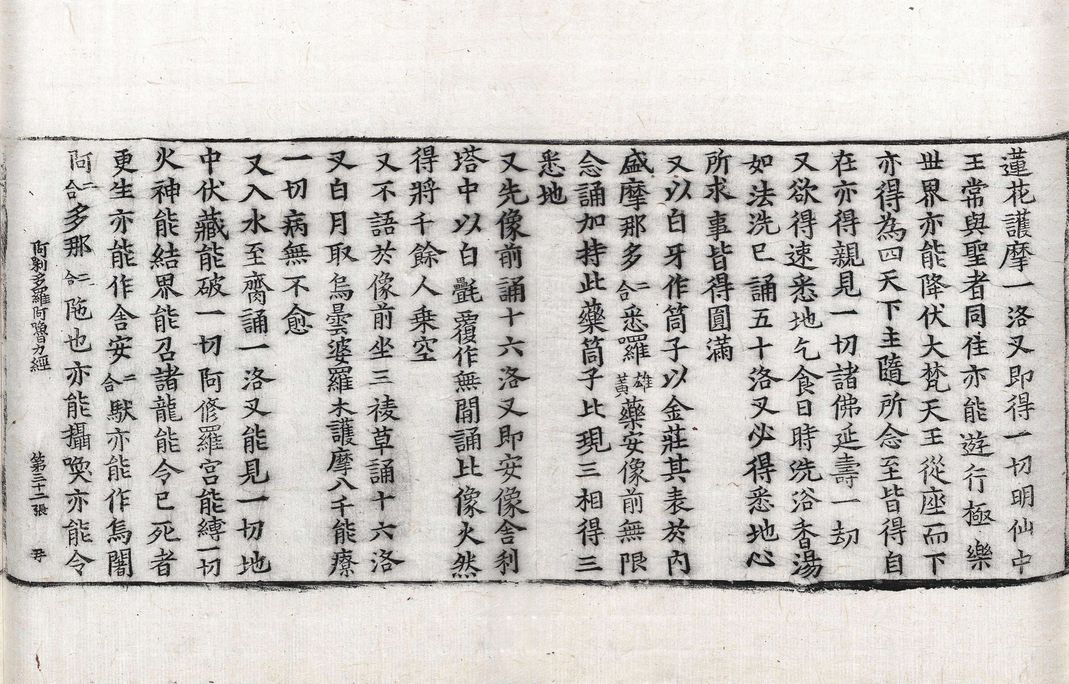 蓮花護摩一洛叉即得一切明仙中
王常與聖者同住亦能遊行極樂
世界亦能降伏大梵天王從座而下
亦得為四天下主隨所念至皆得自
在亦得親見一切諸佛延壽一劫
又欲得速悉地乞食日時洗浴香湯
如法洗已誦五十洛叉必得悉地心
所求事皆得圓滿
又以白牙作筒子以金莊其表於内
盛摩那多二合悉囉雄黃藥安像前無限
念誦加持此藥筒子比現三相得三
悉地
又先像前誦十六洛叉即安像舍利
塔中以白㲲覆作無間誦比像火然
得將千餘人乗空
又不語於像前坐三稜草誦十六洛
叉白月取烏曇婆羅木護摩八千能療
一切病無不愈
又入水至齊誦一洛叉能見一切地
中伏藏能破一切阿修羅宮能縛一切
火神能結界能召諸龍能令已死者
更生亦能作舍安二合馱亦能作馬闇
阿二合多那二合陁也亦能攝喚亦能令
阿唎多羅阿嚕力經 第三十二張